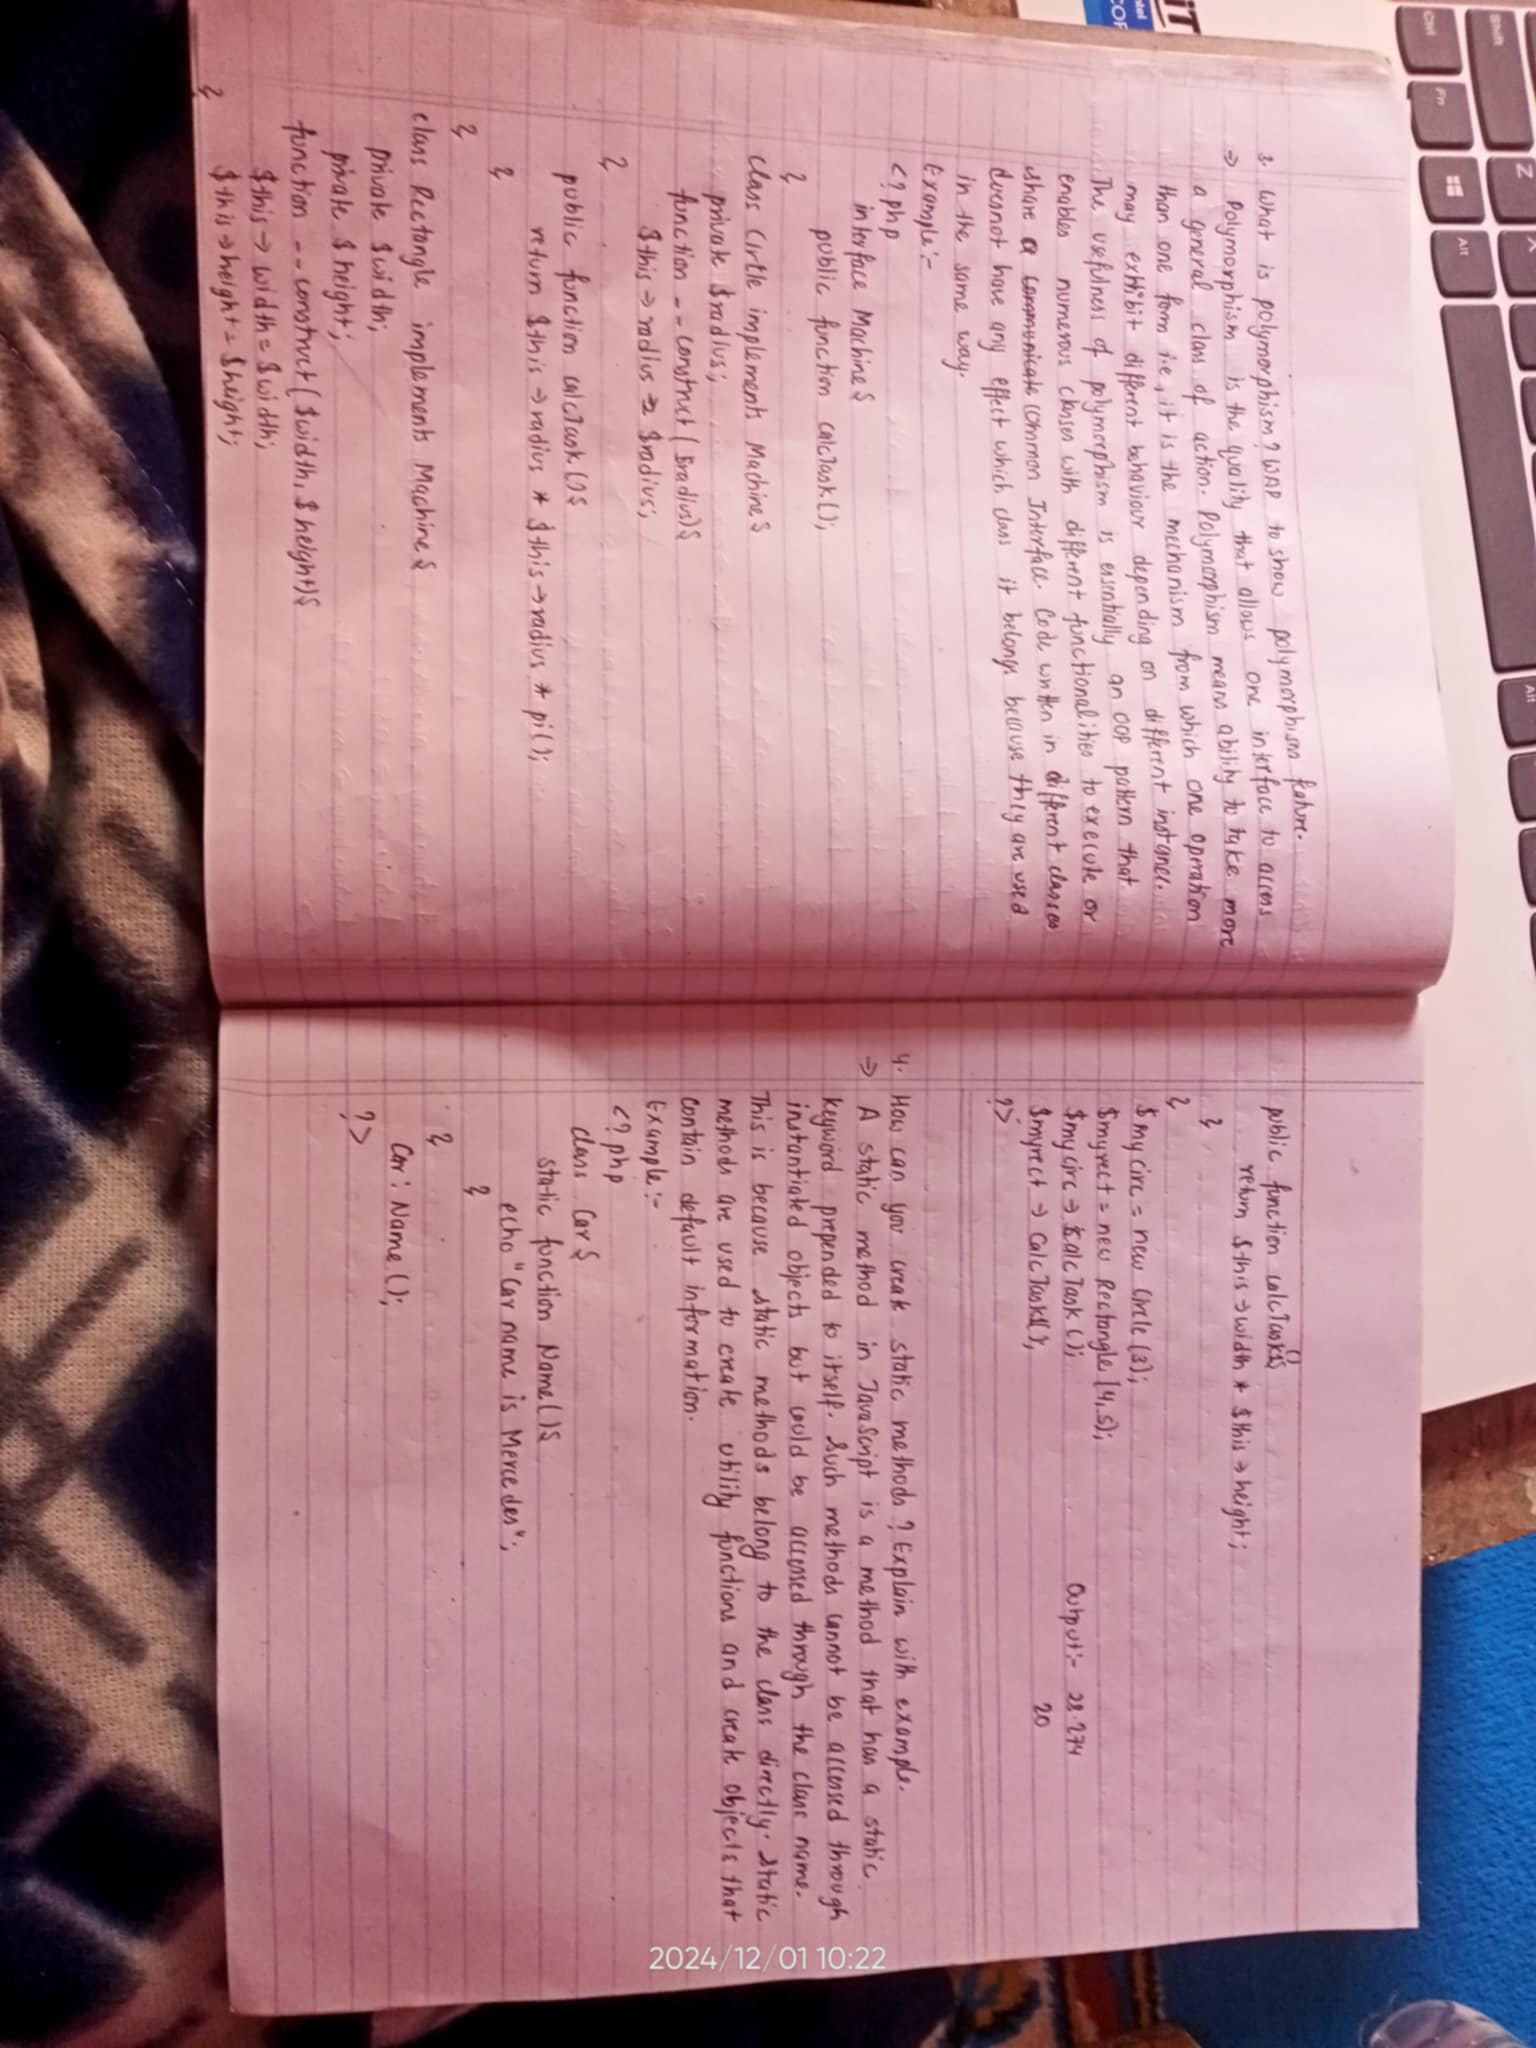 Shift
Z
X
Alt
Ctrl
Fn
Alt
3. What is polymorphism? WAP to show polymorphism feature.
→ Polymorphism is the quality that allows one interface to access
a general class of action. Polymorphism means ability to take more
than one form i.e, it is the mechanism from which one operation
may exhibit different behaviour depending on different instance.
The usefulness of polymorphism is essentially an OOP pattern that
enables numerous classes with different functionalities to execute or
share a communicate common Interface. Code written in different classes
doesnot have any effect which class it belongs because they are used
in the same way.
Example:-
<?php
interface Machine{
public function calcTask();
}
class Circle implements Machine{
private $radius;
function __construct($radius){
$this→radius = $radius;
}
public function calcTask(){
return $this→radius * $this→radius * pi();
}
}
class Rectangle implements Machine{
private $width;
private $height;
function __construct($width, $height){
$this→width = $width;
$this→height = $height;
}
public function calcTask(){
return $this→width * $this→height;
}
}
$mycirc = new Circle(3);
$myrect = new Rectangle(4,5);
$mycirc → CalcTask();
Output:- 28.274
$myrect → CalcTask();
20
?>
4. How can you create static methods? Explain with example.
→ A static method in JavaScript is a method that has a static
keyword prepended to itself. Such methods cannot be accessed through
instantiated objects but could be accessed through the class name.
This is because static methods belong to the class directly. Static
methods are used to create utility functions and create objects that
contain default information.
Example:-
<?php
class Car{
static function Name(){
echo "Car name is Mercedes";
}
}
Car: Name();
?>
2024/12/01 10:22